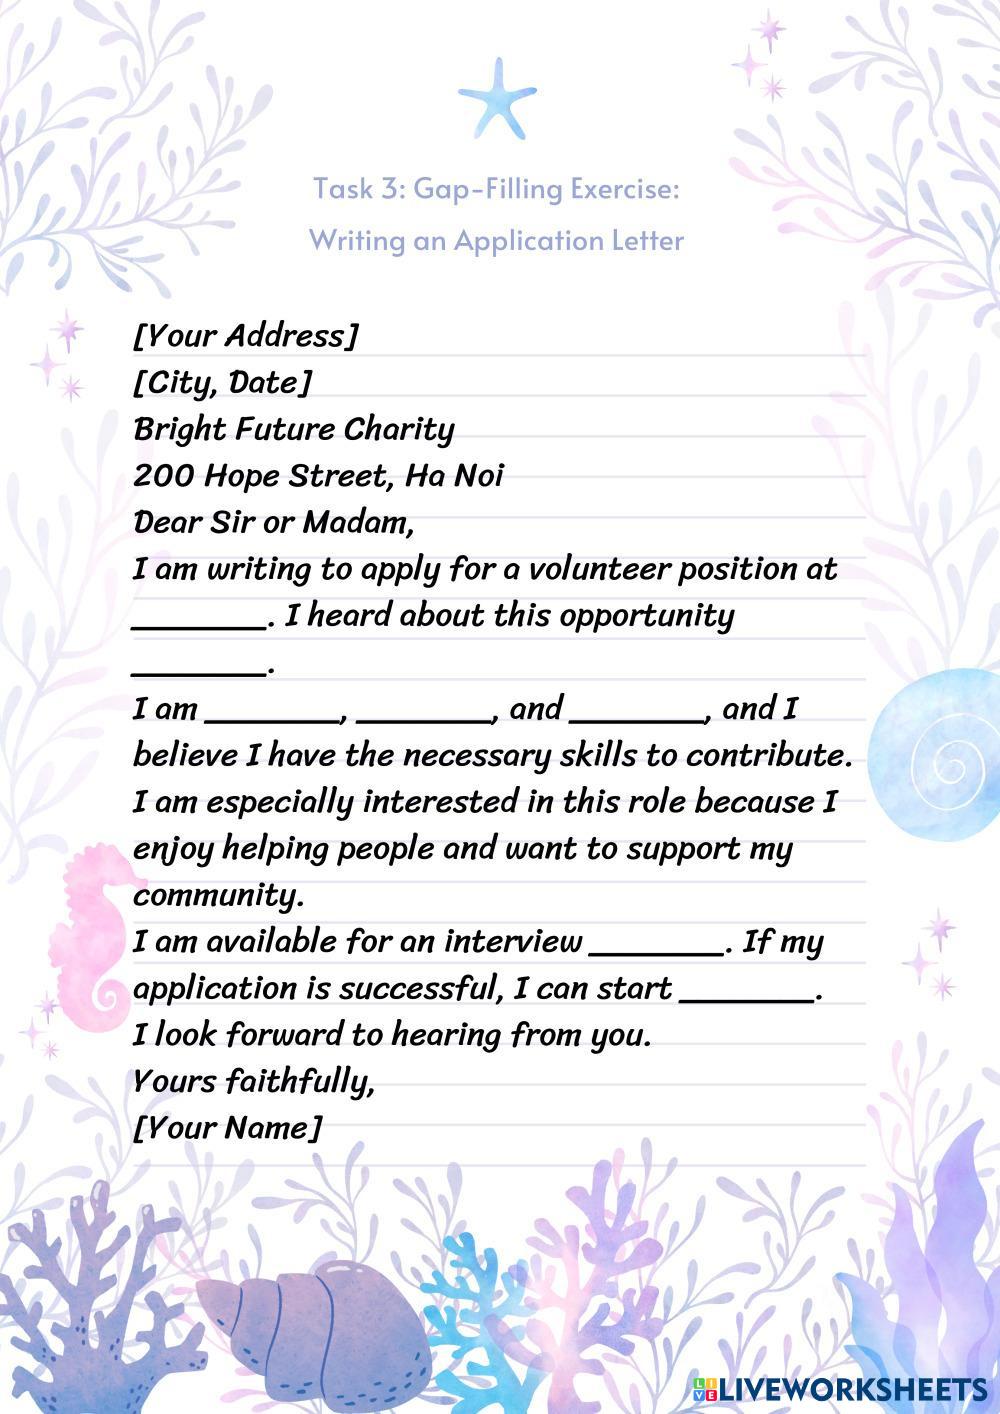 Task 3: Gap-Filling Exercise:
Writing an Application Letter
[Your Address]
[City, Date]
Bright Future Charity
200 Hope Street, Ha Noi
Dear Sir or Madam,
I am writing to apply for a volunteer position at
________. I heard about this opportunity
________.
I am ________, ________, and ________, and I
believe I have the necessary skills to contribute.
I am especially interested in this role because I
enjoy helping people and want to support my
community.
I am available for an interview ________. If my
application is successful, I can start ________.
I look forward to hearing from you.
Yours faithfully,
[Your Name]
LIVE LIVEWORKSHEETS